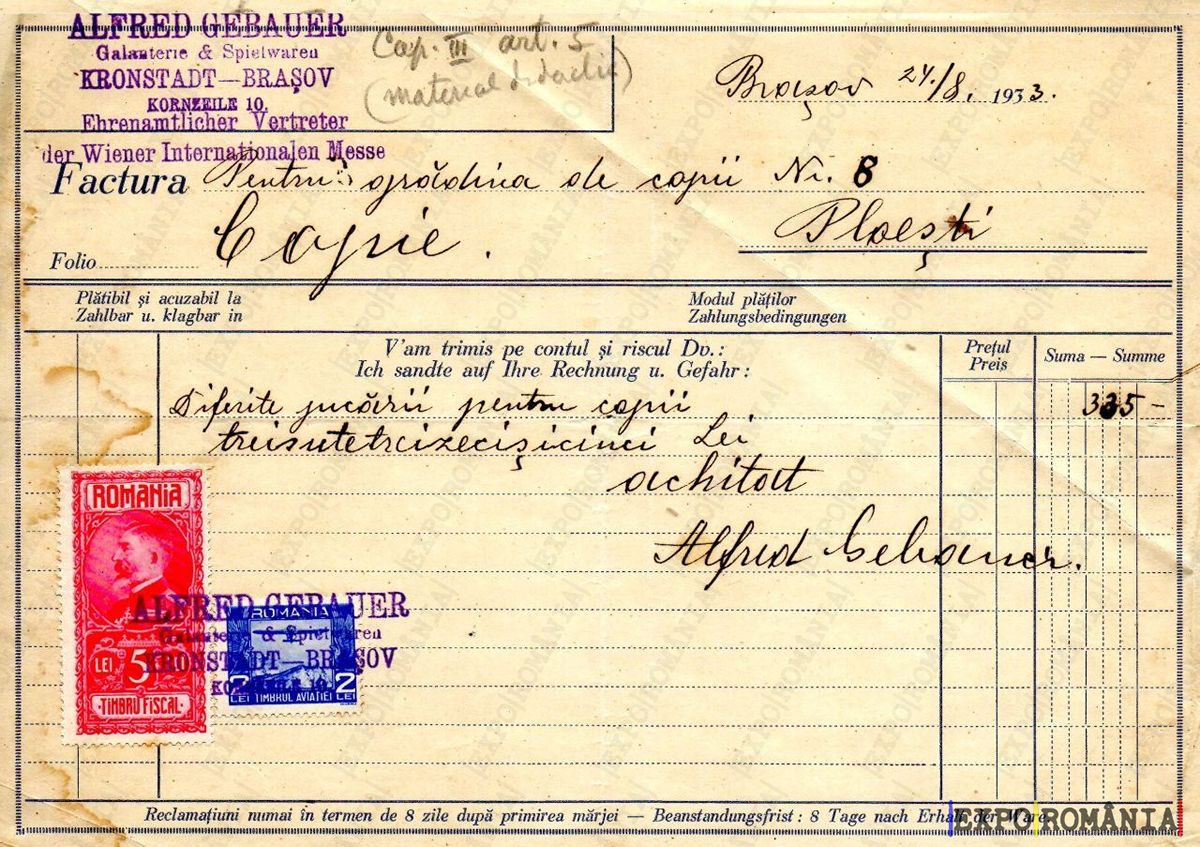 ALFRED GEBAUER
Galanterie & Spielwaren
KRONSTADT—BRAȘOV
KORNZEILE 10.
Ehrenamtlicher Vertreter
der Wiener Internationalen Messe
Cap. III art. 5
(material didactic)
Brașov 24/8. 1933.
Factura Pentru grădina de copii Nr. 8
Copie.
Ploești
Folio
Plătibil și acuzabil la
Zahlbar u. klagbar in
Modul plăților
Zahlungsbedingungen
V'am trimis pe contul și riscul Dv.:
Ich sandte auf Ihre Rechnung u. Gefahr:
Prețul
Preis
Suma — Summe
Diferite jucării pentru copii 335 —
treisutetreizecișicinci Lei
achitat
Alfred Gebauer.
ROMANIA
LEI 5
TIMBRU FISCAL
ALFRED GEBAUER
Galanterie & Spielwaren
KRONSTADT—BRAȘOV
KORNZEILE 10.
ROMANIA
2 2
LEI TIMBRUL AVIAȚIEI LEI
Reclamațiuni numai în termen de 8 zile după primirea mărfei — Beanstandungsfrist: 8 Tage nach Erhalt der Ware.
EXPO ROMÂNIA